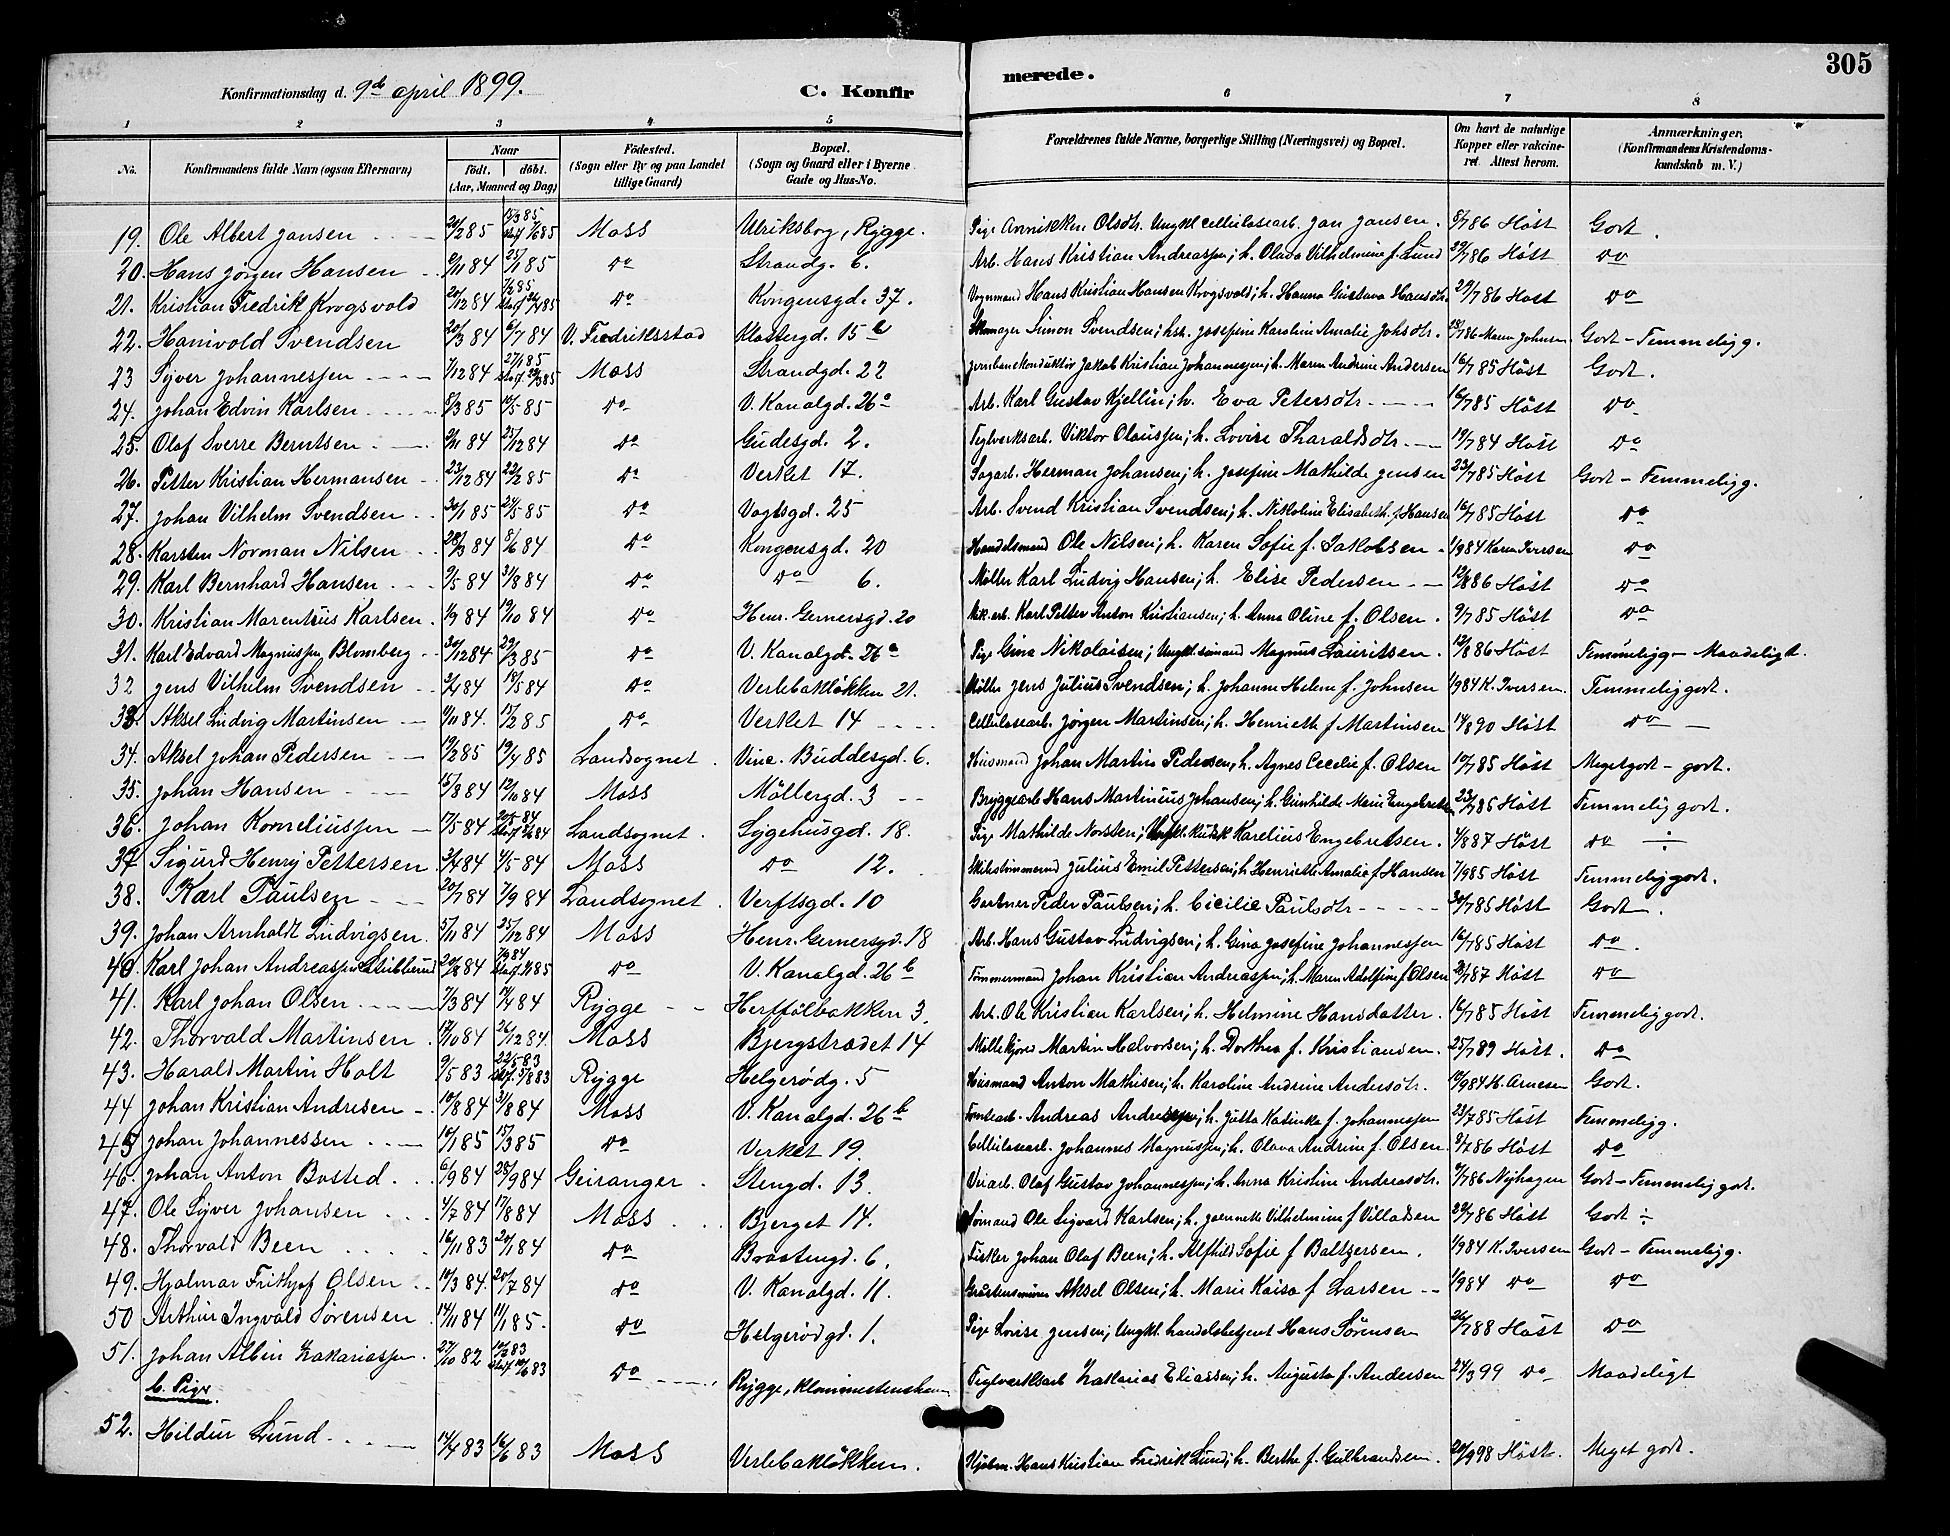 305
Konfirmationsdag d. 9de april 1899. C. Konfirmerede.
1 2 3 4 5 6 7 8
No. Konfirmandens fulde Navn (ogsaa Efternavn) Naar födt. döbt. (Aar, Maaned og Dag) Födested. (Sogn eller By og paa Landet tillige Gaard) Bopæl. (Sogn og Gaard eller i Byerne Gade og Hus-No. Forældrenes fulde Navne, borgerlige Stilling (Næringsvei) og Bopæl. Om havt de naturlige Kopper eller vaccineret. Attest herom. Anmærkninger. (Konfirmandens Kristendomskundskab m. V.)
19. Ole Albert Jansen Moss Ulriksborg, Rygge. Pige Annikken Olsdtr. Ungkl cellulosearb. Jan Jansen. 8/7 86 Höst Godt.
20. Hans Jörgen Hansen 9/11 84 25/1 85 Do Strandg. 6. Arb. Hans Kristian Andreassen; h. Olava Vilhelmine f. Lund 29/7 86 Höst Do
21. Kristian Fredrik Krogsvold 20/12 84 Do Kongensgd. 37. Vognmand Hans Kristian Hansen Krogsvold; h. Hanna Gustava Hansdtr. 29/7 86 Höst Do
22. Hanivold Svendsen 20/3 84 6/7 84 V. Fredriksstad Klostergd. 15 b Skomager Simon Svendsen; hst. Josefine Karoline Amalie Johsdtr. Maren Johnsen Godt - Temmeligg.
23 Syver Johannessen 7/12 84 Moss Strandgd. 22 Jernbanekonduktör Jakob Kristian Johannessen; h. Maren Andrine Andersen 16/7 85 Höst Godt.
24. Johan Edvin Karlsen 8/3 85 10/5 85 Do V. Kanalgd. 26 a Arb. Karl Gustav Kjellin; h. Eva Petersdtr 16/7 85 Höst Do
25. Olaf Sverre Berntsen 9/11 84 25/12 84 Do Gudesgd. 2. Teglverksarb. Viktor Olaussen; h. Lovise Tharaldsdtr. 19/7 84 Höst Do
26. Petter Kristian Hermansen 23/12 84 22/2 85 Do Verket 17. Sagarb. Herman Johansen; h. Josefine Mathilde Jensen 23/7 85 Höst Godt - Temmeligg.
27. Johan Vilhelm Svendsen 30/1 85 24/5 85 Do Vogtsgd. 25 Arb. Svend Kristian Svendsen; h. Nikoline Elisabeth f. Hansen 16/7 85 Höst Do
28. Karsten Norman Nilsen 28/3 84 8/6 84 Do Kongensgd. 20 Handelsmand Ole Nilsen; h. Karen Sofie f. Jakobsen 1/9 84 Karen Iversen Do
29. Karl Bernhard Hansen 9/5 84 31/8 84 Do Do 6. Møller Karl Ludvig Hansen; h. Elise Pedersen 12/8 86 Höst Do
30. Kristian Marentius Karlsen. 1/9 84 19/10 84 Do Henr. Gernersgd. 20 Karl Petter Anton Kristiansen; h. Anna Oline f. Olsen. 9/7 85 Höst Do
31. Karl Edvard Magnussen Blomberg 30/12 84 29/3 85 Do V. Kanalgd. 26 a Pige Gina Nikolaisen; Ungkl. sömand Magnus Lauritsen. 12/8 86 Höst Temmeligg - Maadeligt.
32 Jens Vilhelm Svendsen 3/4 84 18/5 84 Do Verlebakløkken 21. Møller Jens Julius Svendsen; h. Johanne Helene f. Johnsen 1/9 84 K. Iversen. Temmelig godt.
33. Aksel Ludvig Martinsen 9/11 84. 15/2 85 Do Verket 14 Cellulosearb. Jørgen Martinsen; h. Henriette f. Martinsen 14/8 90 Höst Do
34. Aksel Johan Pedersen 19/2 85 19/4 85 Landsognet. Vinc. Buddesgd. 6. Husmand Johan Martin Pedersen, h. Agnes Cecilie f. Olsen 10/7 85 Höst Megetgodt - godt.
35. Johan Hansen 15/8 84 12/10 84 Moss Möllergd. 3 Bryggearb Hans Martinius Johansen; h. Gunhilde Marie Engebretsen 23/7 85 Höst Temmelig godt.
36. Johan Korneliussen 17/5 84 Landsognet. Sygehusgd. 18. Pige Mathilde Norsten; Ungkl. kusk Karelius Engebretsen. 4/8 87 Höst Do ÷
37 Sigurd Henry Pettersen 3/4 84 4/5 84 Moss Do 12. Skibstømmermd Julius Emil Pettersen; h. Henriette Amalie f. Hansen 7/9 85 Höst Temmelig godt.
38. Karl Paulsen 20/7 84 7/9 84 Landsognet. Verftsgd. 10 Gartner Peder Paulsen; h. Cicilie Paulsdtr 30/7 85 Höst Godt.
39. Johan Arnholdt Ludvigsen. 5/11 84 25/12 84 Moss Henr. Gernersgd. 18 Arb. Hans Gustav Ludvigsen; h. Gina Josefine Johannessen 16/7 85 Höst Do.
40. Karl Johan Andreassen Stibberud 20/8 84 Do V. Kanalgd. 26 b Tømmermand Johan Kristian Andreassen; h. Maren Adolfine f. Olsen Höst Do
41. Karl Johan Olsen 7/3 84 14/4 84 Rygge Hertfölbakken 3. Arb. Ole Kristian Karlsen; h. Helmine Hansdatter. 16/7 85 Höst Temmeliggodt.
42. Thorvald Martinsen 17/10 84 26/12 84. Moss Bjergstrædet 14 Möllekjörer Martin Halvorsen; h. Dorthea f. Kristiansen. 25/7 89 Höst. Do
43. Harald Martin Holt 9/5 83 Rygge Helgerödg. 5 Husmand Anton Mathisen; h. Karoline Andrine Andersdtr. 10/9 84 K. Arnesen Godt.
44 Johan Kristian Andresen 10/8 84 31/8 84 Moss V. Kanalgd. 26 b Tomtearb. Andreas Andreassen; h. Jutta Katinka f. Johannessen 23/7 85 Höst Temmeligg.
45 Johan Johannessen 10/1 85 15/3 85 Do Verket 19. Cellulosearb. Johannes Magnussen; h. Olava Andrine f. Olsen. 8/7 86 Höst Do
46. Johan Anton Bosted. 6/9 84 28/9 84 Geiranger. Stengd. 13. Olaf Gustav Johannessen; h. Anna Kristine Andreasdtr. 9/7 86 Nyhagen Godt - Temmelig godt.
47. Ole Syver Johansen 4/7 84 17/8 84 Moss Bjerget 14. Sömand Ole Sigvard Karlsen; h. Jeannette Vilhelmine f Villadsen 29/7 86 Höst Godt ÷
48. Thorvald Been 16/11 83 20/1 84 Do Braatengd. 6. Fisker Johan Olaf Been; h. Alfhild Sofie f Baltzersen. 1/9 84 K. Iversen Godt - Temmeligg.
49. Hjalmar Frithjof Olsen 14/3 84. 20/7 84 Do V. Kanalgd. 11. Aksel Olsen; h. Marie Kaisa f Larsen 1/9 84 Do Do
50 Arthur Ingvald Sörensen 14/11 84 11/1 85. Do Helgerödgd. 1. Pige Lovise Jensen; Ungkl. handelsbetjent Hans Sörensen 26/7 88 Höst Do
51. Johan Albin Zakariassen. 27/10 82 Do Rygge, Teglverksarb Zakarias Eliassen; h. Augusta f. Andersen 24/3 99 Do Maadeligt
b. Piger.
52. Hildur Lund 14/4 83 16/6 83 Moss Verlebakløkken. Hans Kristian Fredrik Lund; h. Berthe f. Gulbrandsen. 20/9 98 Höst. Meget godt.